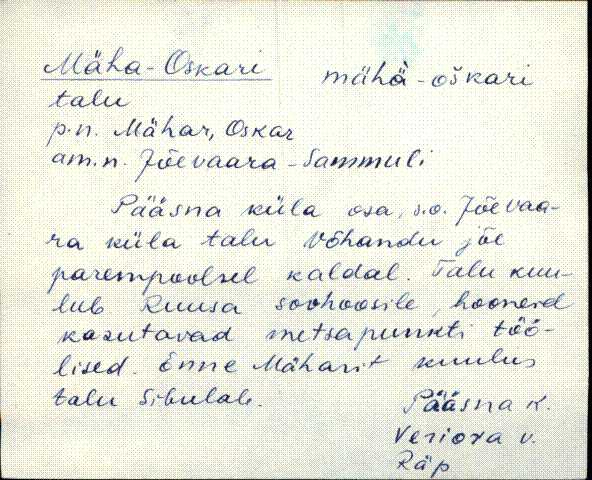 Mäha-Oskari mähä-oškari
talu
p.n. Mähar, Oskar
am.n. Jõevaara-Sammuli
Pääsna küla osa, s.o. Jõevaa-
ra küla talu Võhandu jõe
parempoolsel kaldal. Talu kuu-
lub Ruusa sovhoosile, hooneid
kasutavad metsapunkti töö-
lised. Enne Mäharit kuulus
talu Sibulale.
Pääsna k.
Veriora v.
Räp